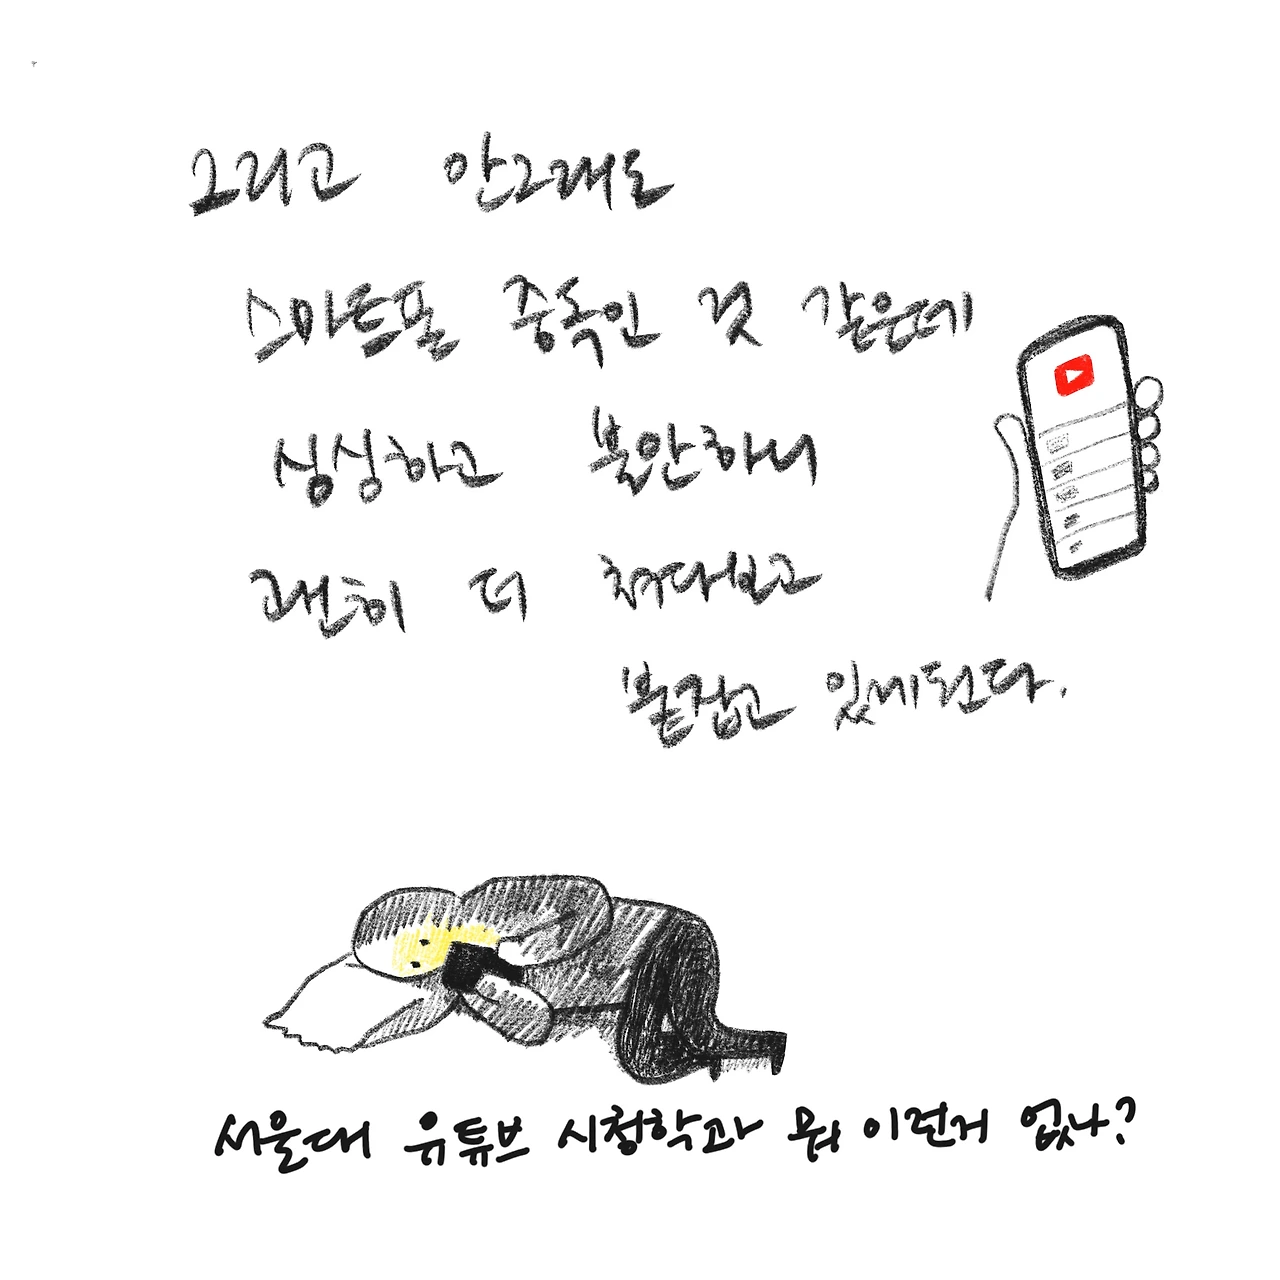 그리고 안그래도
스마트폰 중독인 것 같은데
싱싱하고 불안하니
괜히 더 쳐다보고
붙잡고 있게된다.
서울대 유튜브 시청학과 뭐 이런거 없나?